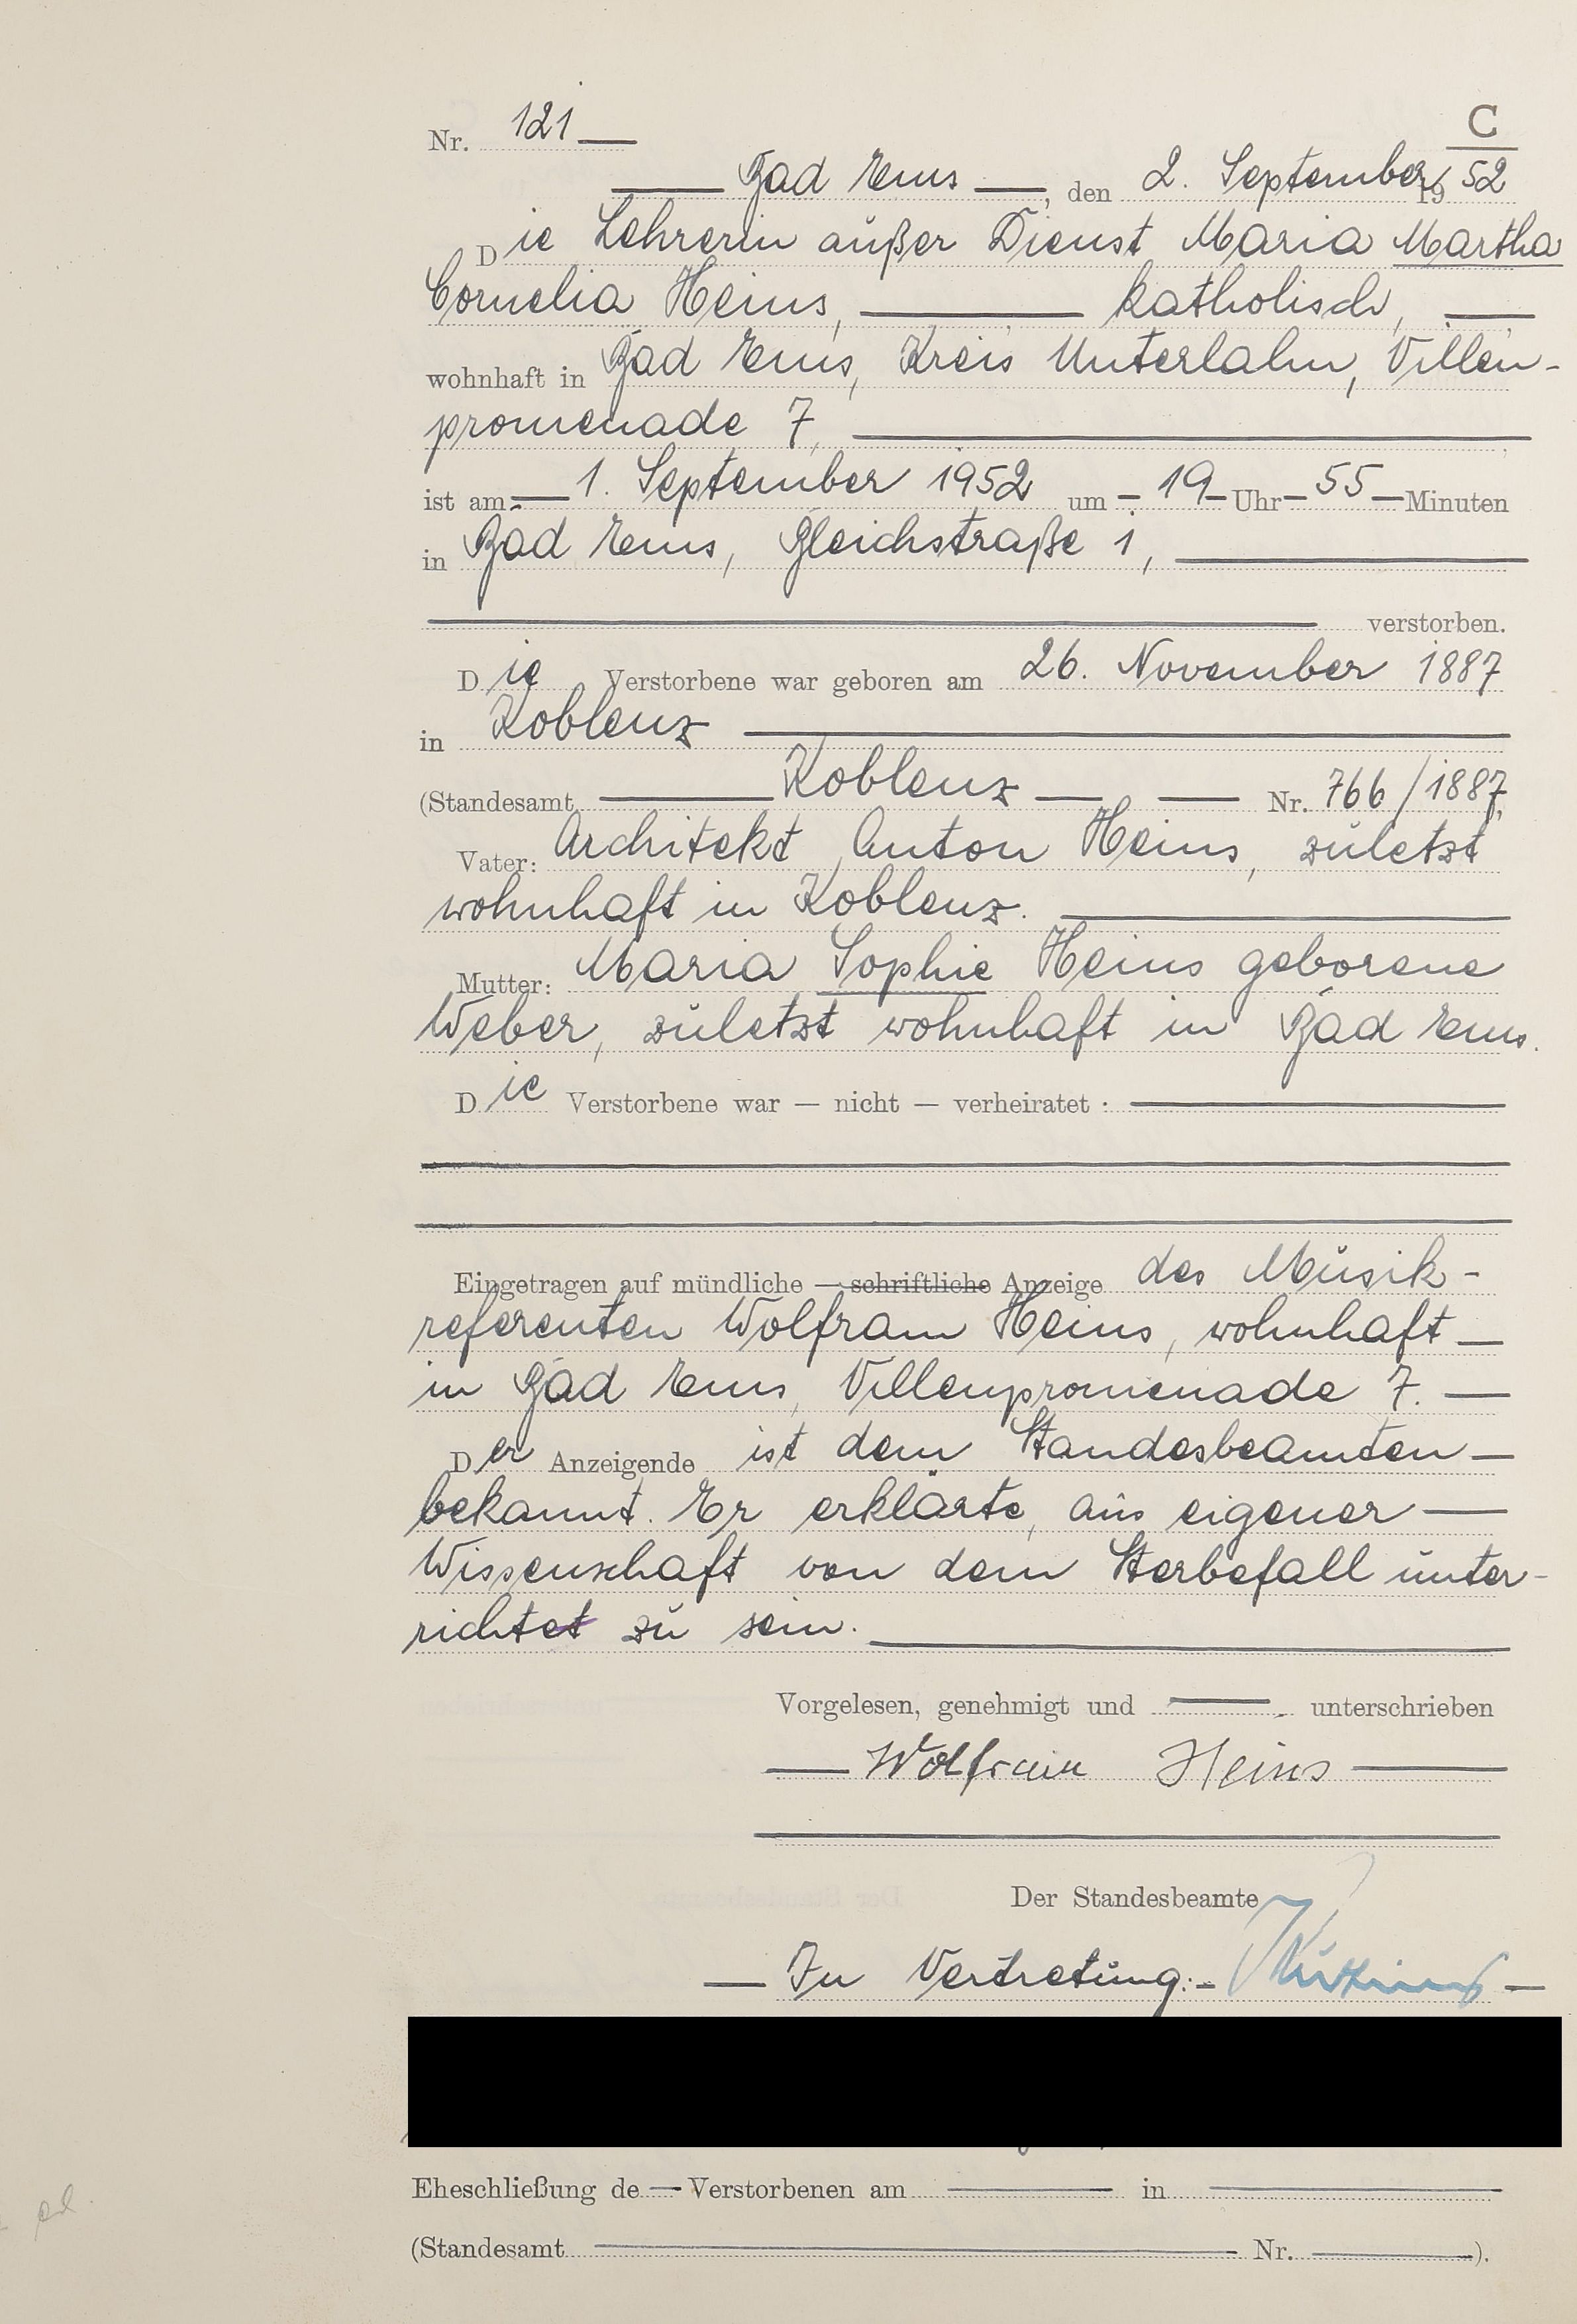 C
Nr. 121
Bad Ems, den 2. September 1952
Die Lehrerin außer Dienst Maria Martha
Cornelia Heins, katholisch,
wohnhaft in Bad Ems, Kreis Unterlahn, Villen-
promenade 7,
ist am 1. September 1952 um 19 Uhr 55 Minuten
in Bad Ems, Bleichstraße 1,
verstorben.
Die Verstorbene war geboren am 26. November 1887
in Koblenz
(Standesamt Koblenz Nr. 766/1887)
Vater: Architekt Anton Heins, zuletzt
wohnhaft in Koblenz.
Mutter: Maria Sophie Heins geborene
Weber, zuletzt wohnhaft in Bad Ems.
Die Verstorbene war — nicht — verheiratet :
Eingetragen auf mündliche — schriftliche Anzeige des Musik-
referenten Wolfram Heins, wohnhaft
in Bad Ems, Villenpromenade 7.
Der Anzeigende ist dem Standesbeamten
bekannt. Er erklärte, aus eigener
Wissenschaft von dem Sterbefall unter-
richtet zu sein.
Vorgelesen, genehmigt und unterschrieben
Wolfram Heins
Der Standesbeamte
In Vertretung:
Eheschließung de Verstorbenen am in
(Standesamt Nr. ).